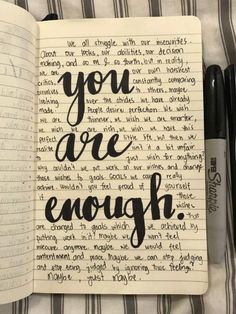 We all struggle with our insecurities
about our looks, our abilities, our decision
making, and so on & so forth, but in reality, we
are our own harshest
critics, constantly comparing
ourselves to others, maybe
looking over the strides we have already
made. People desire perfection. We wish
we are thinner, we wish we are smarter,
we wish we are rich, we wish we have this
perfect little life but then we
realize isn't it a bit unfair
to just wish for anything?
Why couldn't we put work to our wishes and change
those wishes to goals. Goals we can really
achieve. Wouldn't you feel proud of yourself
if those
wishes
are changed to goals which are achieved by
putting work in it? Maybe we won't feel
insecure anymore. Maybe we would feel
contentment and peace. Maybe we can stop judging
and stop being judged by ignoring those feelings?
Maybe, just maybe.
you
are
enough.
Sharpie